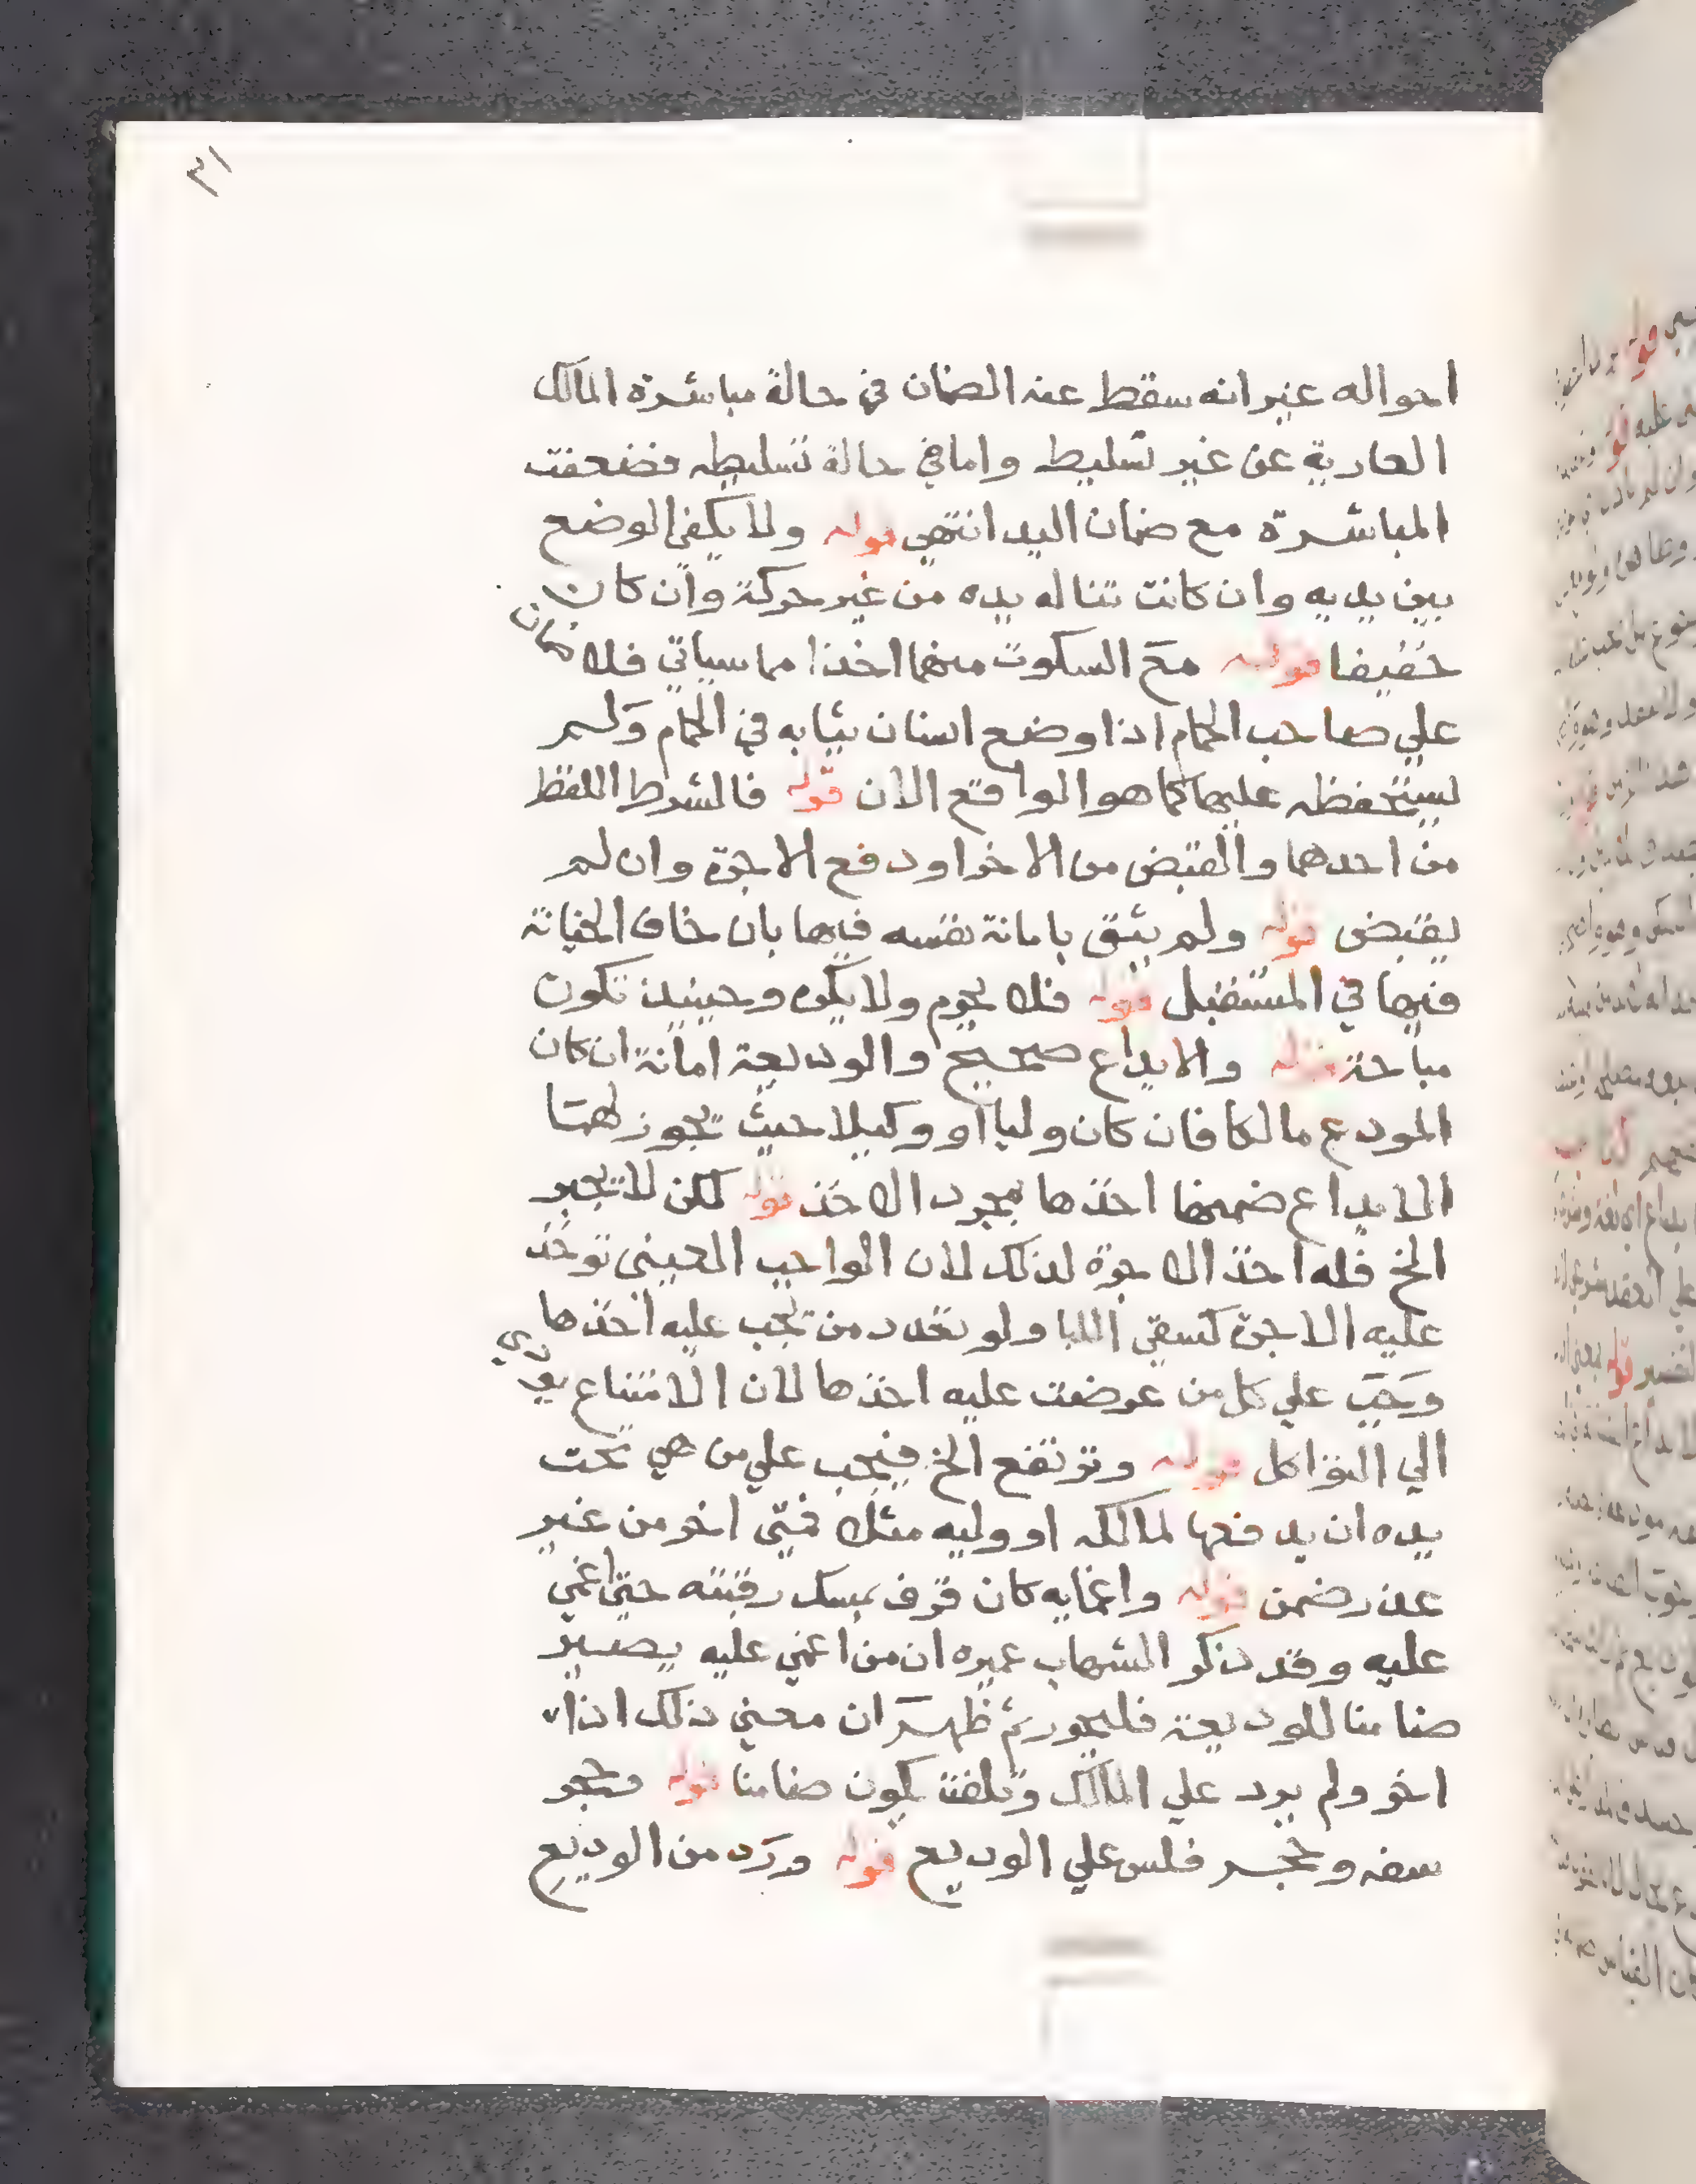 ٣١
احواله غير انه سقط عنه الضمان في حالة مباشرة المالك
العارية عن غير تسليط واما في حالة تسليطه فضعفت
المباشرة مع ضمان اليد انتهي قوله ولا يكفي الوضع
بين يديه وان كانت تناله يده من غير حركة وان كان
خفيفا قوله مع السكوت منهما اخذا مما سياتي فلا ضمان
علي صاحب الحمام اذا وضع انسان ثيابه في الحمام ولم
يستحفظه عليها كما هو الواقع الان قوله فالشرط اللفظ
من احدهما والقبض من الاخر او دفع الاجرة وان لم
يقبض قوله ولم يثق بامانة نفسه فيها بان خاف الخيانة
فيها في المستقبل قوله فلا يحرم ولا يكره وحينيذ تكون
مباحة قوله والايداع صحيح والوديعة امانة ان كان
المودع مالكا فان كان وليا او وكيلا حيث تجوز لهما
الايداع ضمنها اخذها بمجرد الاخذ قوله لكن لا يجبر
الخ فله اخذ الاجرة لذلك لان الواجب العيني توخذ
عليه الاجرة كسقي اللبا ولو تعدد من تجب عليه اخذها
وجب علي كل من عرضت عليه اخذها لان الامتناع يودي
الي التواكل قوله وترتفع الخ فيجب علي من هي تحت
يده ان يدفعها لمالكه او وليه مثلا فمتي اخر من غير
عذر ضمن قوله واغمايه كان قرف بمسك رقبته حتي اغمي
عليه وقد ذكر الشهاب عميره ان من اغمي عليه يصير
ضامنا للوديعة فليحرر ثم ظهر ان معني ذلك اذا
اخر ولم يرد علي المالك وتلفت يكون ضامنا قوله وحجر
سفه وحجر فلس علي الوديع قوله ورد من الوديع